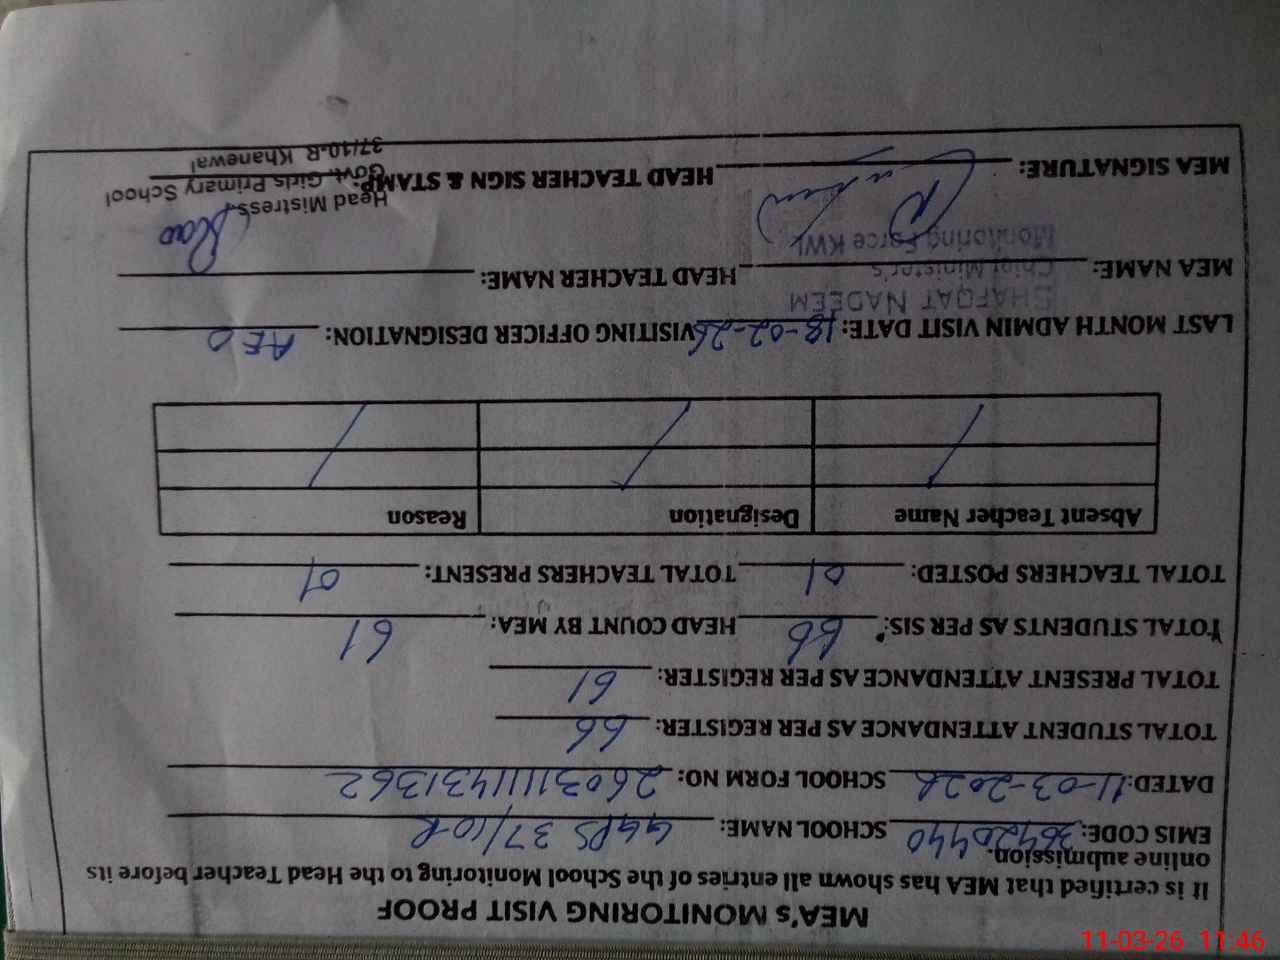 MEA's MONITORING VISIT PROOF
It is certified that MEA has shown all entries of the School Monitoring to the Head Teacher before its
online aubmission.
EMIS CODE: 36420440 SCHOOL NAME: GGPS 37/10-R
DATED: 11-03-2026 SCHOOL FORM NO: 2603111431362
TOTAL STUDENT ATTENDANCE AS PER REGISTER: 66
TOTAL PRESENT ATTENDANCE AS PER REGISTER: 61
TOTAL STUDENTS AS PER SIS: 66 HEAD COUNT BY MEA: 61
TOTAL TEACHERS POSTED: 01 TOTAL TEACHERS PRESENT: 01
Absent Teacher Name Designation Reason
LAST MONTH ADMIN VISIT DATE: 18-02-26 VISITING OFFICER DESIGNATION: AEO
SHAFQAT NADEEM
MEA NAME: Chief Minister's HEAD TEACHER NAME:
Monitoring Force KWL
MEA SIGNATURE: HEAD TEACHER SIGN & STAMP:
Head Mistress
Govt. Girls Primary School
37/10-R Khanewal
11-03-26 11:46